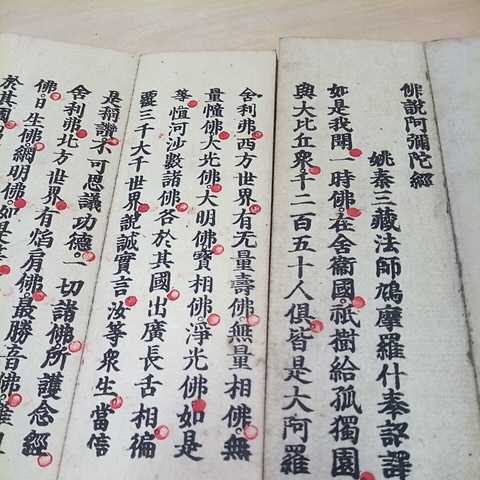 佛說阿彌陀經
姚秦三藏法師鳩摩羅什奉詔譯
如是我聞一時佛在舍衞國祇樹給孤獨園
與大比丘衆千二百五十人俱皆是大阿羅
舍利弗西方世界有无量壽佛無量相佛無
量幢佛大光佛大明佛寶相佛淨光佛如是
等恒河沙數諸佛各於其國出廣長舌相徧
覆三千大千世界說誠實言汝等衆生當信
是稱讚不可思議功德一切諸佛所護念經
舍利弗北方世界有焰肩佛最勝音佛難
佛日生佛網明佛如是等
於其國